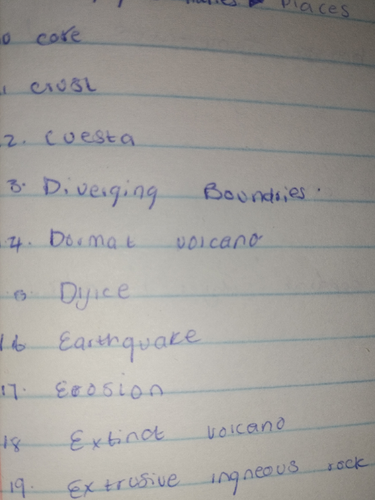 Places
0 core
1 crust
2. Cuesta
3. Diverging Boundries.
4. Dormat volcano
Dyice
16 Earthquake
17. Erosion
18 Extinct volcano
19. Extrusive ingneous rock